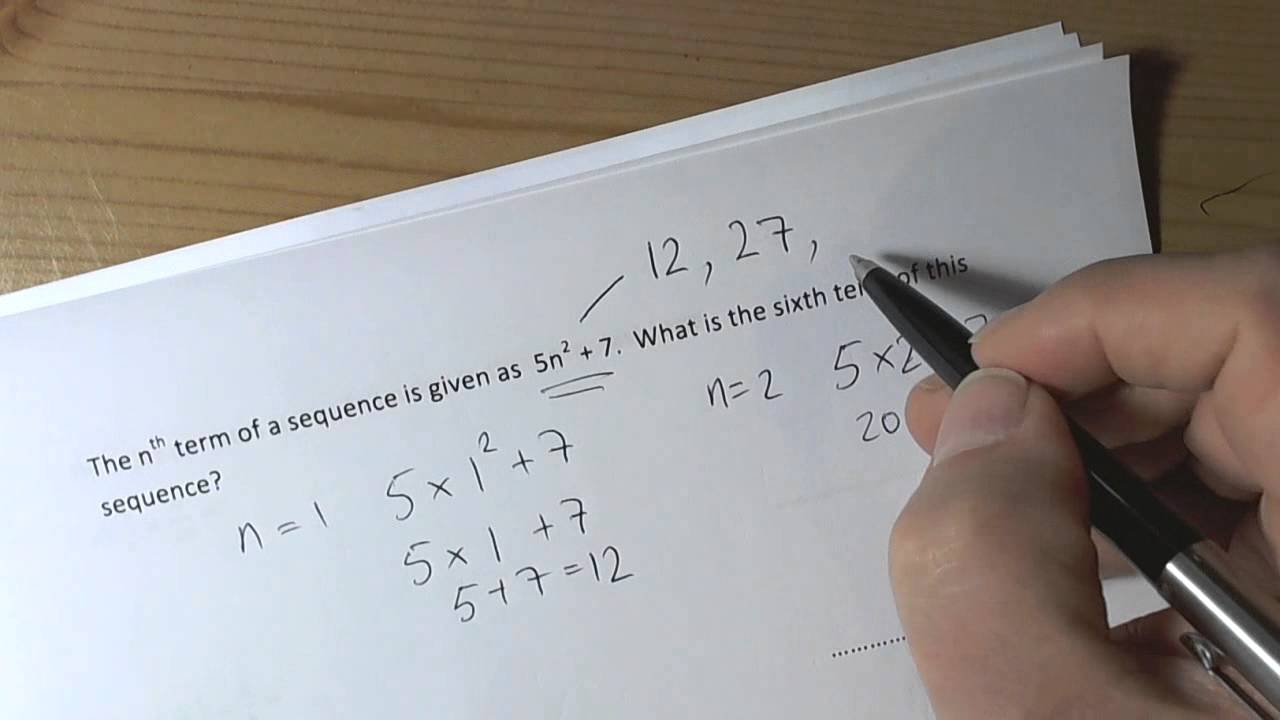 12, 27,
The nth term of a sequence is given as 5n² + 7. What is the sixth of this
sequence?
n = 1 5 × 1² + 7
5 × 1 + 7
5 + 7 = 12
n = 2 5 × 2
20